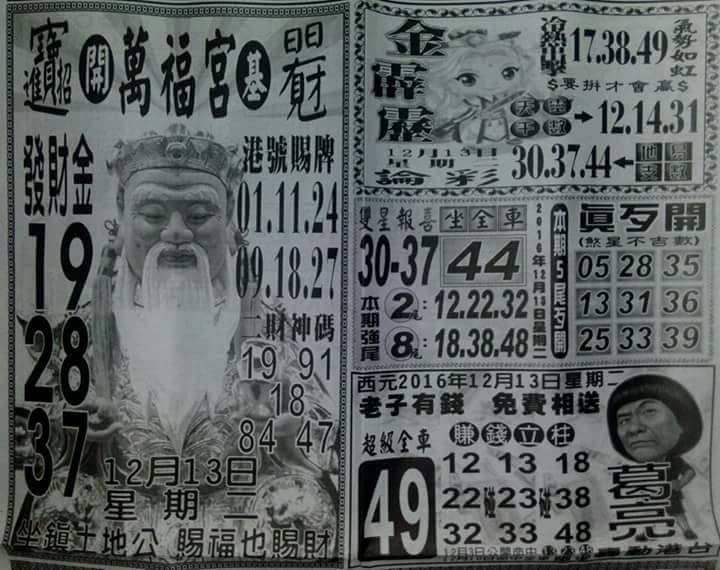 招財進寶
開
萬福宮
基
發財金
19
28
37
港號賜牌
01.11.24
09.18.27
二財神碼
19 91
18
84 47
12月13日
星期二
坐鎮土地公 賜福也賜財
金霹靂
冷熱出擊
17.38.49
氣勢如虹
$要拼才會贏$
12.14.31
12月13日
星期二
30.37.44
論彩
雙星報喜
坐全車
30-37
44
2016年12月13日星期二
本期強尾
2尾:12.22.32
8尾:18.38.48
本期5尾歹開
真歹開
(煞星不吉數)
05 28 35
13 31 36
25 33 39
西元2016年12月13日星期二
老子有錢 免費相送
超級全車
49
賺錢立柱
12 13 18
22 碰 23 碰 38
32 33 48
葛亮